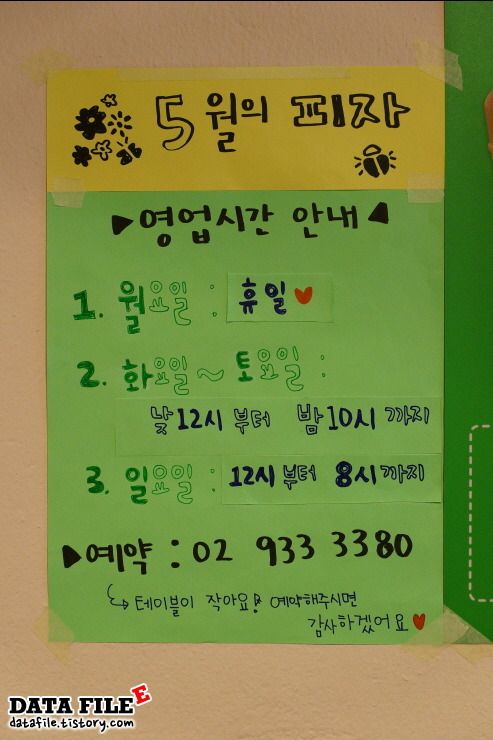 5월의 피자
▶영업시간 안내◀
1. 월요일 : 휴일♥
2. 화요일~토요일 :
낮12시 부터 밤10시 까지
3. 일요일 : 12시 부터 8시 까지
▶예약 : 02 933 3380
↪테이블이 작아요! 예약해주시면
감사하겠어요♥
DATA FILE E
datafile.tistory.com